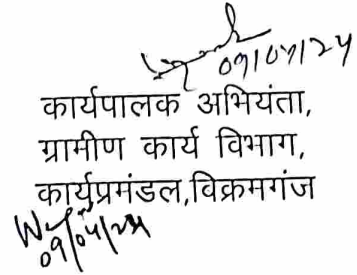 09/07/24
कार्यपालक अभियंता,
ग्रामीण कार्य विभाग,
कार्यप्रमंडल,विक्रमगंज